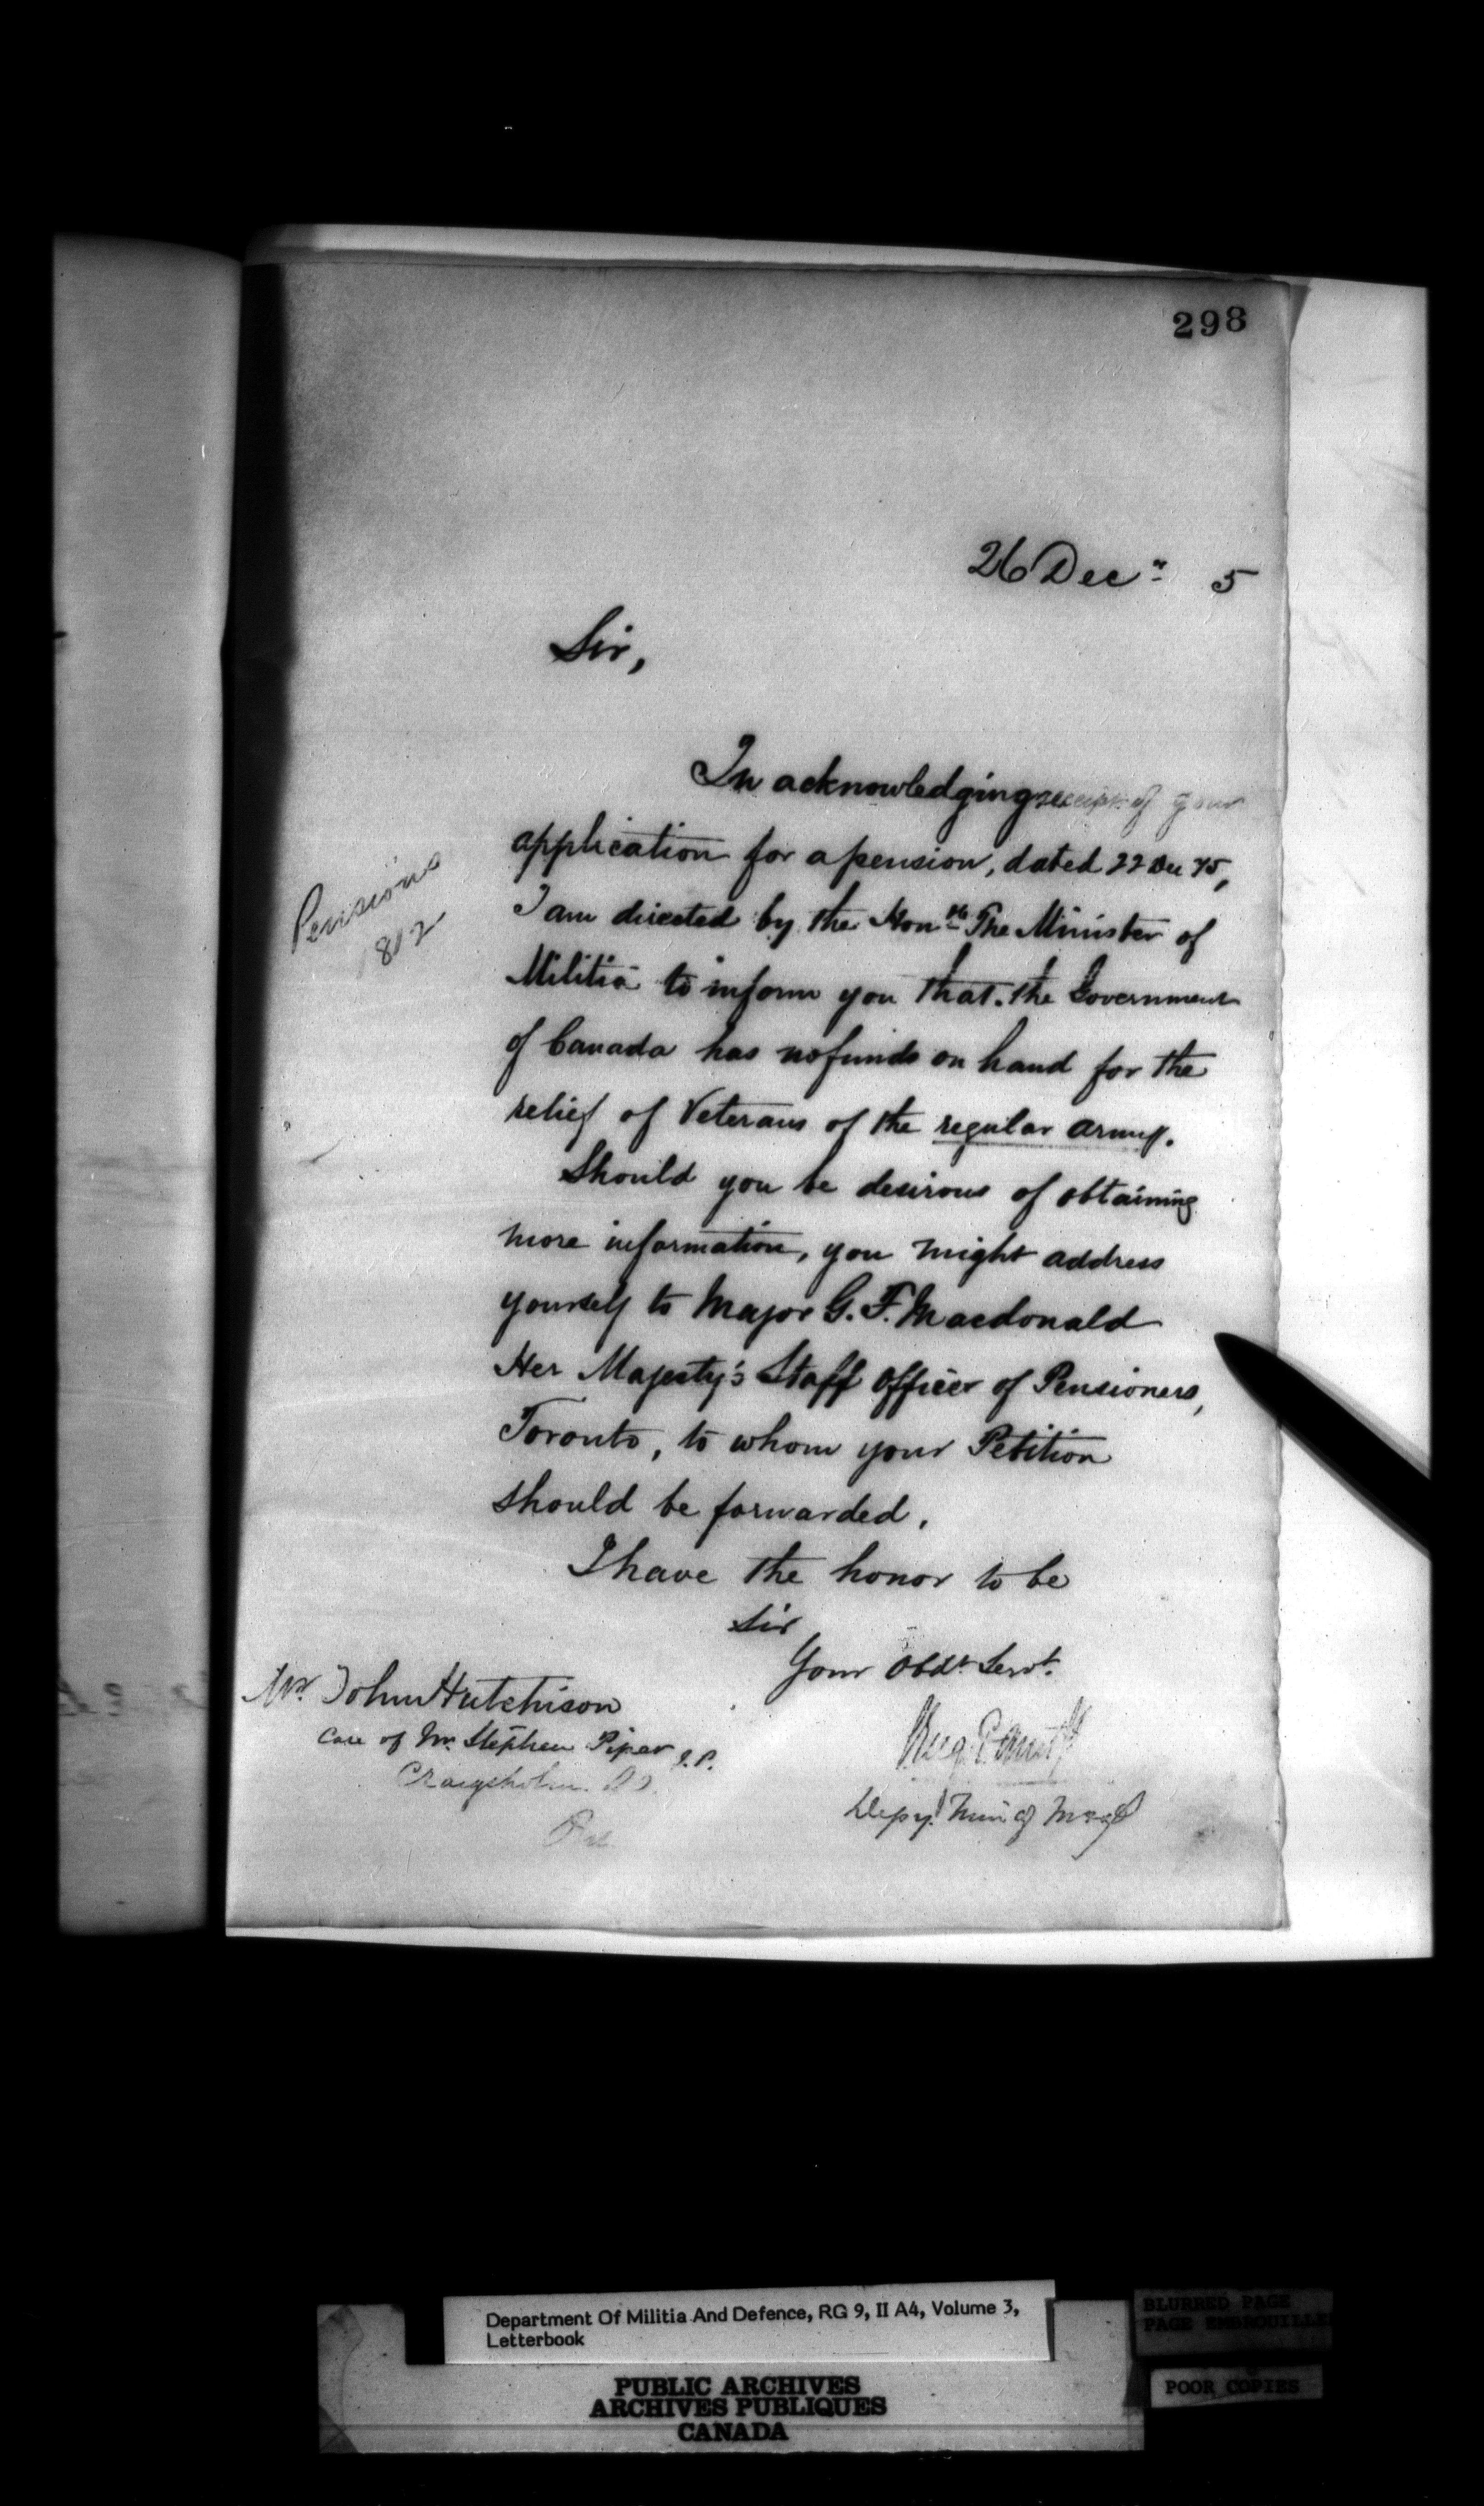 298
26 Decr 5
Sir,
In acknowledging receipt of your
application for a pension, dated 22 Dec 75,
I am directed by the Honble The Minister of
Militia to inform you that the Government
of Canada has no funds on hand for the
relief of Veterans of the regular army.
Should you be desirous of obtaining
more information, you might address
yourself to Major G. F. Macdonald
Her Majesty's Staff Officer of Pensioners,
Toronto, to whom your Petition
should be forwarded.
I have the honor to be
Sir
Your Obdt Servt.
Depy. Min of M & D
Pensions
1812
Mr. John Hutchison
Care of Mr. Stephen Piper J.P.
Craigsholm
Ont
Department Of Militia And Defence, RG 9, II A4, Volume 3,
Letterbook
PUBLIC ARCHIVES
ARCHIVES PUBLIQUES
CANADA
BLURRED PAGE
PAGE EMBROUILLE
POOR COPIES